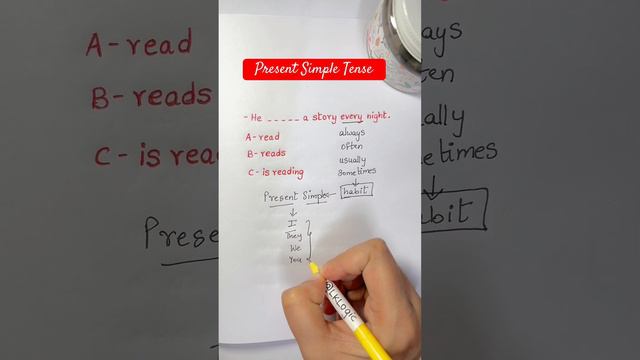 A - read
B - reads
C - is read
Prese
Present Simple Tense
- He _ _ _ _ _ a story every night.
A - read always
B - reads often
usually
C - is reading sometimes
Present Simple - habit
I
They
We
You
@LKLogic
ays
ten
ally
etimes
abit